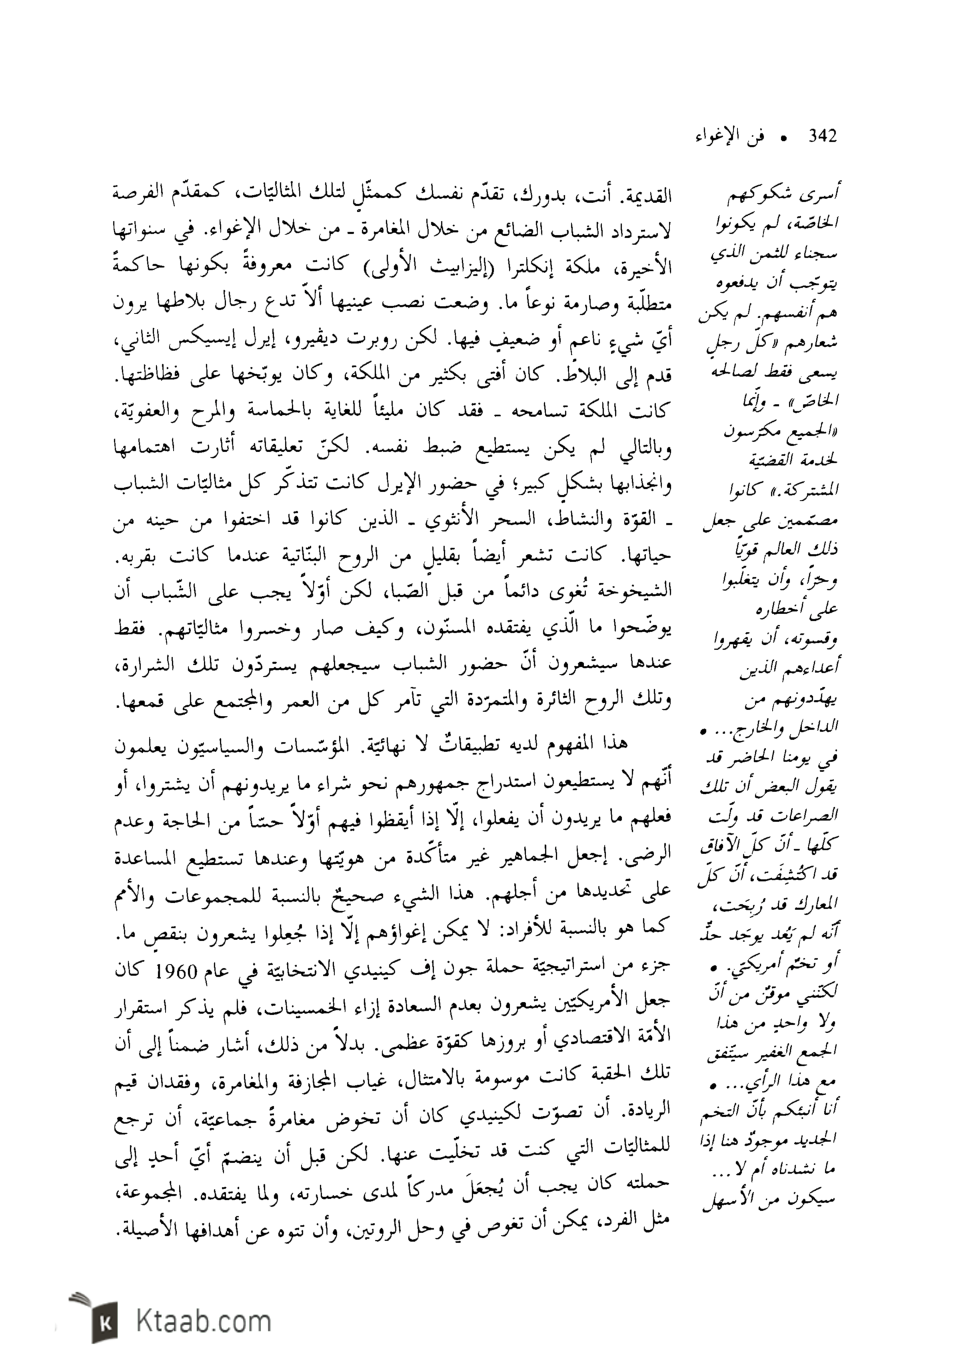 342 • فن الإغواء
أسرى شكوكهم
الخاصّة، لم يكونوا
سجناء للثمن الذي
يتوجّب أن يدفعوه
هم أنفسهم. لم يكن
شعارهم «كلّ رجلٍ
يسعى فقط لصالحه
الخاصّ» ـ وإنّما
«الجميع مكرّسون
لخدمة القضيّة
المشتركة.» كانوا
مصمّمين على جعل
ذلك العالم قويّاً
وحرّاً، وأن يتغلّبوا
على أخطاره
وقسوته، أن يقهروا
أعداءهم الذين
يهدّدونهم من
الداخل والخارج... •
في يومنا الحاضر قد
يقول البعض أن تلك
الصراعات قد ولّت
كلّها ـ أنّ كلّ الآفاق
قد اكتُشِفَت، أنّ كلّ
المعارك قد رُبِحَت،
أنّه لم يَعُد يوجَد حدٌّ
أو تخمٌ أمريكيّ. •
لكنّني موقنٌ من أنّ
ولا واحدٍ من هذا
الجمع الغفير سيتّفق
مع هذا الرأي... •
أنا أنبئكم بأنّ التخم
الجديد موجودٌ هنا إذا
ما نشدناه أم لا...
سيكون من الأسهل
القديمة. أنت، بدورك، تقدّم نفسك كممثّلٍ لتلك المثاليّات، كمقدّم الفرصة
لاسترداد الشباب الضائع من خلال المغامرة ـ من خلال الإغواء. في سنواتها
الأخيرة، ملكة إنكلترا (إليزابيث الأولى) كانت معروفةً بكونها حاكمةً
متطلّبة وصارمة نوعاً ما. وضعت نصب عينيها ألاّ تدع رجال بلاطها يرون
أيّ شيءٍ ناعمٍ أو ضعيفٍ فيها. لكن روبرت ديڤيرو، إيرل إيسيكس الثاني،
قدم إلى البلاط. كان أفتى بكثير من الملكة، وكان يوبّخها على فظاظتها.
كانت الملكة تسامحه ـ فقد كان مليئاً للغاية بالحماسة والمرح والعفويّة،
وبالتالي لم يكن يستطيع ضبط نفسه. لكنّ تعليقاته أثارت اهتمامها
وانجذابها بشكلٍ كبير؛ في حضور الإيرل كانت تتذكّر كل مثاليّات الشباب
ـ القوّة والنشاط، السحر الأنثوي ـ الذين كانوا قد اختفوا من حينه من
حياتها. كانت تشعر أيضاً بقليلٍ من الروح البنّاتية عندما كانت بقربه.
الشيخوخة تُغوى دائماً من قبل الصّبا، لكن أوّلاً يجب على الشّباب أن
يوضّحوا ما الّذي يفتقده المسنّون، وكيف صار وخسروا مثاليّاتهم. فقط
عندها سيشعرون أنّ حضور الشباب سيجعلهم يستردّون تلك الشرارة،
وتلك الروح الثائرة والمتمرّدة التي تآمر كل من العمر والمجتمع على قمعها.
هذا المفهوم لديه تطبيقاتٌ لا نهائيّة. المؤسّسات والسياسيّون يعلمون
أنّهم لا يستطيعون استدراج جمهورهم نحو شراء ما يريدونهم أن يشتروا، أو
فعلهم ما يريدون أن يفعلوا، إلّا إذا أيقظوا فيهم أوّلاً حسّاً من الحاجة وعدم
الرضى. إجعل الجماهير غير متأكّدة من هويّتها وعندها تستطيع المساعدة
على تحديدها من أجلهم. هذا الشيء صحيحٌ بالنسبة للمجموعات والأمم
كما هو بالنسبة للأفراد: لا يمكن إغواؤهم إلّا إذا جُعِلوا يشعرون بنقصٍ ما.
جزء من استراتيجيّة حملة جون إف كينيدي الانتخابيّة في عام 1960 كان
جعل الأمريكيّين يشعرون بعدم السعادة إزاء الخمسينات، فلم يذكر استقرار
الأمّة الاقتصادي أو بروزها كقوّة عظمى. بدلاً من ذلك، أشار ضمناً إلى أن
تلك الحقبة كانت موسومة بالامتثال، غياب المجازفة والمغامرة، وفقدان قيم
الريادة. أن تصوّت لكينيدي كان أن تخوض مغامرةً جماعيّة، أن ترجع
للمثاليّات التي كنت قد تخلّيت عنها. لكن قبل أن ينضمّ أيّ أحدٍ إلى
حملته كان يجب أن يُجعَلَ مدركاً لمدى خسارته، ولما يفتقده. المجموعة،
مثل الفرد، يمكن أن تغوص في وحل الروتين، وأن تتوه عن أهدافها الأصيلة.
Ktaab.com